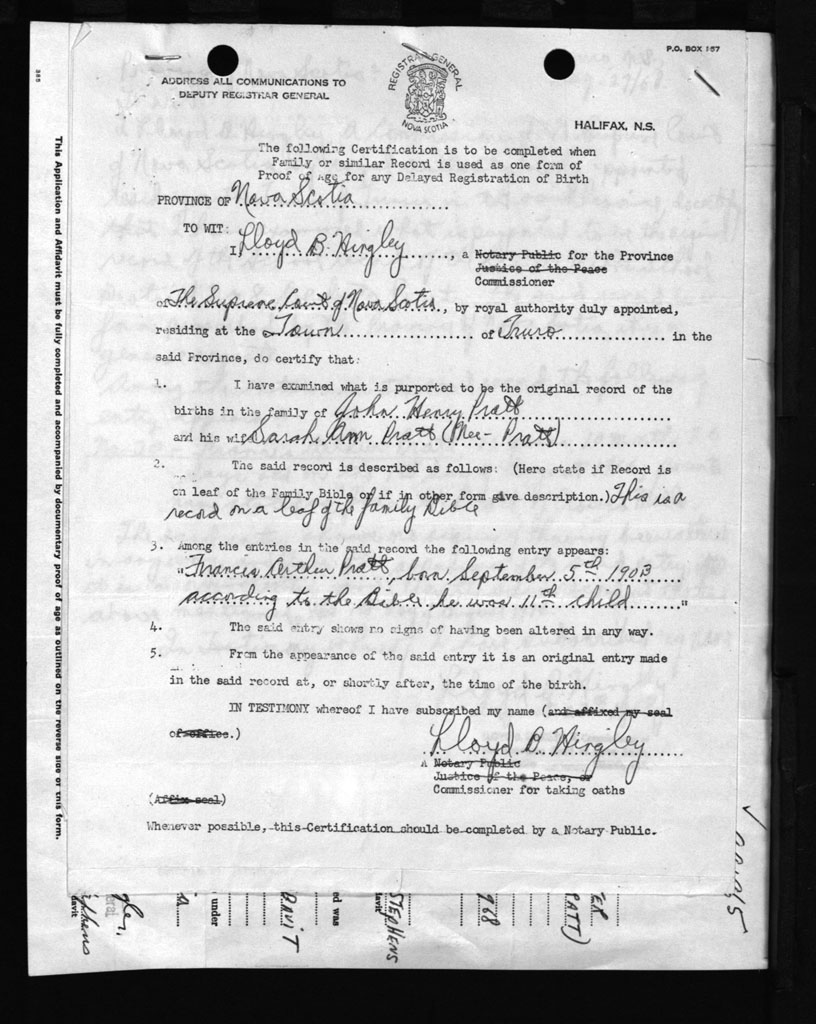 P.O. BOX 157
ADDRESS ALL COMMUNICATIONS TO
DEPUTY REGISTRAR GENERAL
REGISTRAR GENERAL
NOVA SCOTIA
HALIFAX, N.S.
The following Certification is to be completed when
Family or similar Record is used as one form of
Proof of Age for any Delayed Registration of Birth
PROVINCE OF Nova Scotia
TO WIT:
I Lloyd B. Hingley, a Notary Public for the Province
Justice of the Peace
Commissioner
of The Supreme Court of Nova Scotia, by royal authority duly appointed,
residing at the Town of Truro in the
said Province, do certify that:
1. I have examined what is purported to be the original record of the
births in the family of John Henry Pratt
and his wife Sarah Ann Pratt (Nee - Pratt)
2. The said record is described as follows: (Here state if Record is
on leaf of the Family Bible or if in other form give description.) This is a
record on a leaf of the family Bible
3. Among the entries in the said record the following entry appears:
"Francis Arthur Pratt, born September 5th 1903
according to the Bible he was 11th child"
4. The said entry shows no signs of having been altered in any way.
5. From the appearance of the said entry it is an original entry made
in the said record at, or shortly after, the time of the birth.
IN TESTIMONY whereof I have subscribed my name (and affixed my seal
of office.)
Lloyd B Hingley
A Notary Public
Justice of the Peace, or
Commissioner for taking oaths
(Affix seal)
Whenever possible, this Certification should be completed by a Notary Public.
This Application and Affidavit must be fully completed and accompanied by documentary proof of age as outlined on the reverse side of this form.
under
DAVIT
ed was
STEPHENS
davit
968
ER
PATT)